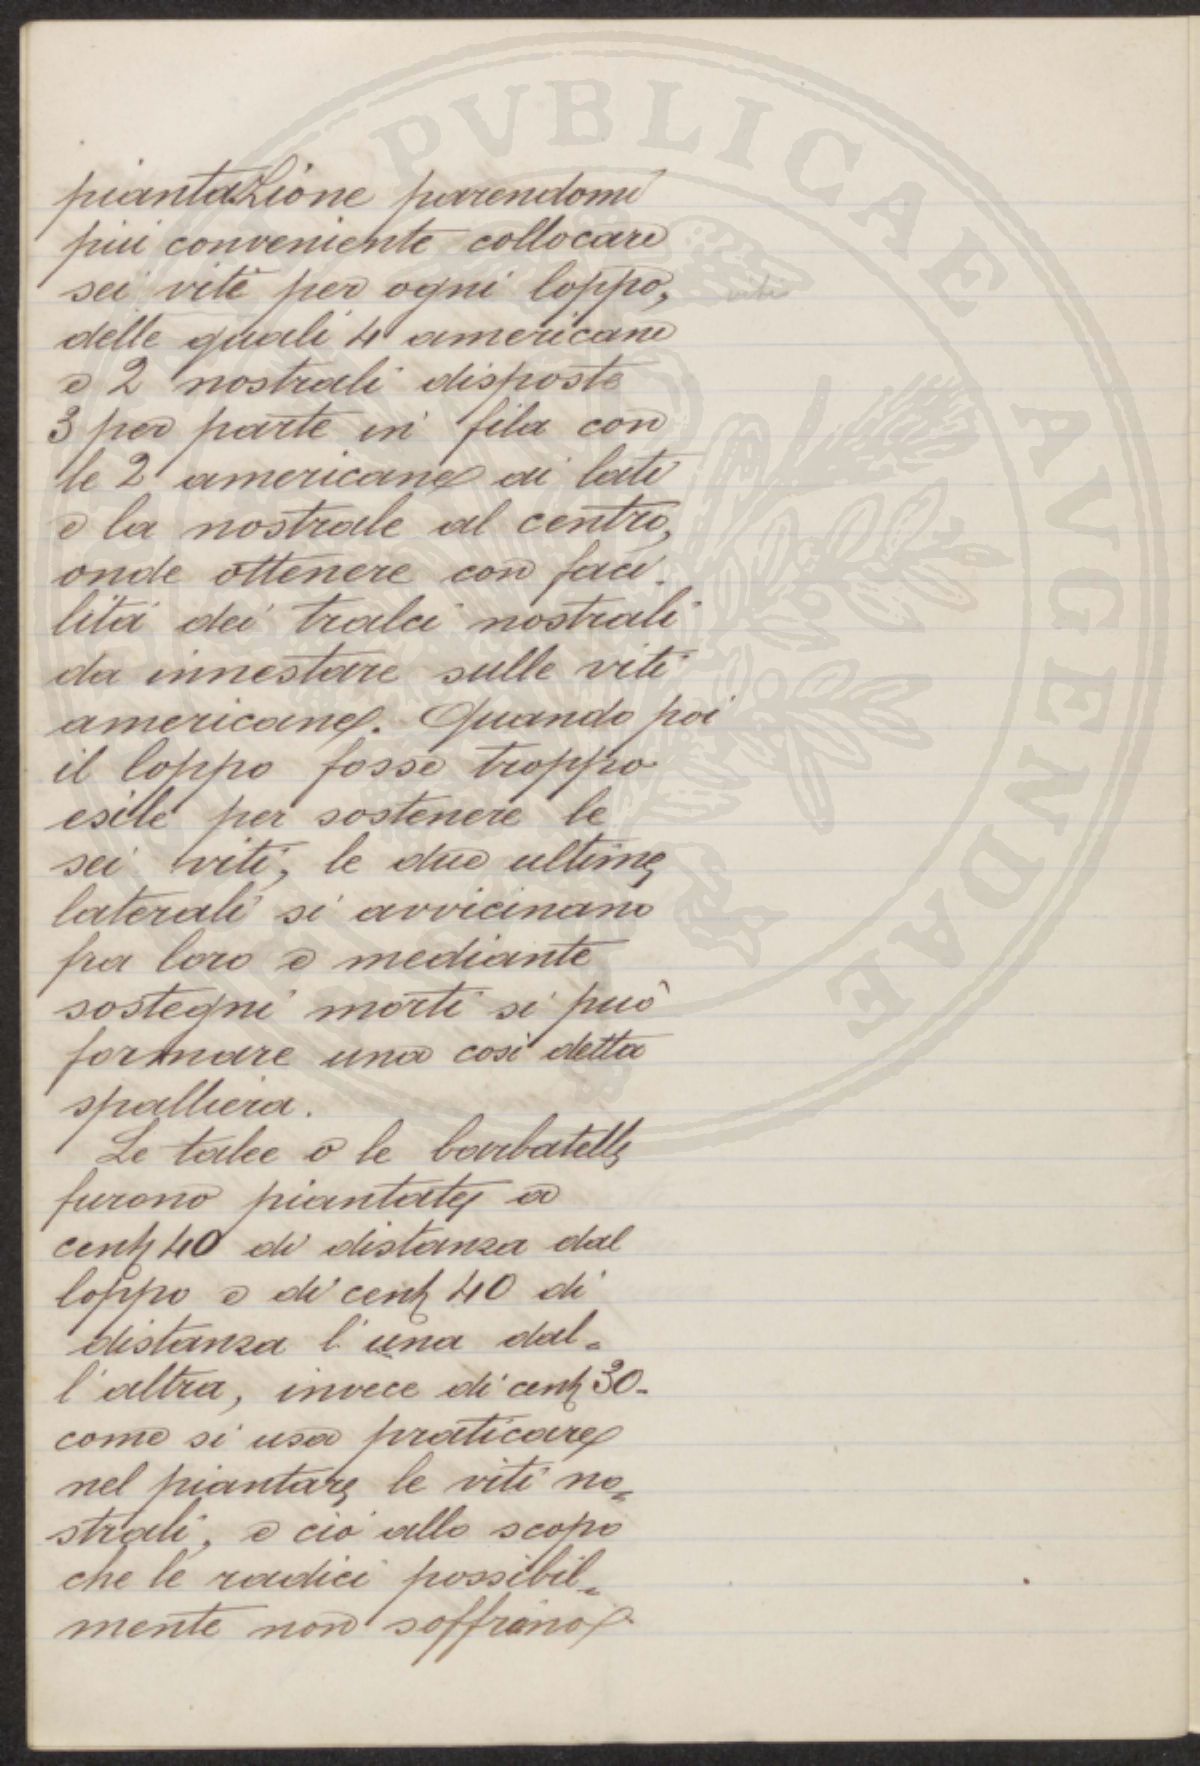 PVBLICAE AVGENDAE
piantazione parendomi
più conveniente collocare
sei viti per ogni loppo,
viti
delle quali 4 americane
e 2 nostrali disposte
3 per parte in fila con
le 2 americane ai lati
e la nostrale al centro,
onde ottenere con faci-
lità dei tralci nostrali
da innestare sulle viti
americane. Quando poi
il loppo fosse troppo
esile per sostenere le
sei viti, le due ultime
laterali si avvicinano
fra loro e mediante
sostegni morti si può
formare una così detta
spalliera.
Le talee o le barbatelle
furono piantate a
cent 40 di distanza dal
loppo e di cent 40 di
distanza l'una dal=
l'altra, invece di cent 30-
come si usa praticare
nel piantare le viti no=
strali, e ciò allo scopo
che le radici possibil=
mente non soffrino